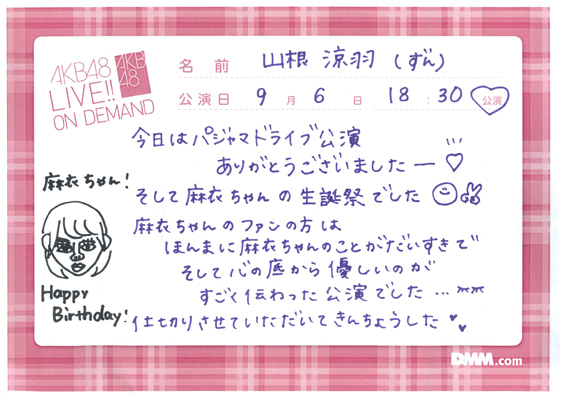 AKB48
LIVE!!
ON DEMAND
AKB
48
名前 山根 涼羽 (ずん)
公演日 9月6日 18:30 公演
今日はパジャマドライブ公演
ありがとうございましたー♡
そして麻衣ちゃんの生誕祭でした
麻衣ちゃんのファンの方は
ほんまに麻衣ちゃんのことがだいすきで
そして心の底から優しいのが
すごく伝わった公演でした…
仕切りさせていただいてきんちょうした
麻衣ちゃん!
Happy
Birthday!
DMM.com